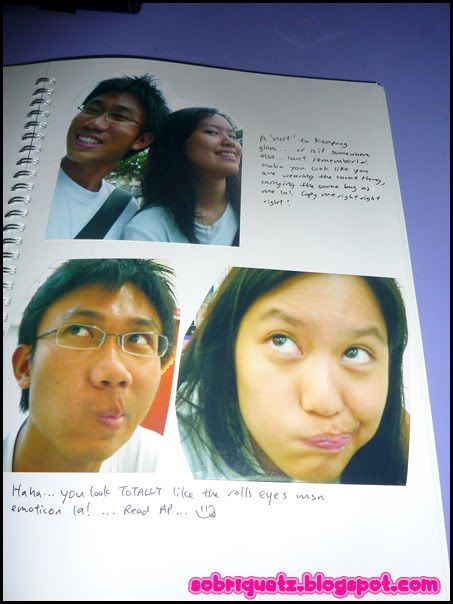 A 'visit' to Kampong
glam... or is it somewhere
else... cant remember la!
Haha you look like you
are wearing the same thing,
carrying the same bag as
me la! Copy me right right
right!
Haha... you look TOTALLY like the rolls eyes msn
emoticon la! ... Read AP...
sobriquetz.blogspot.com